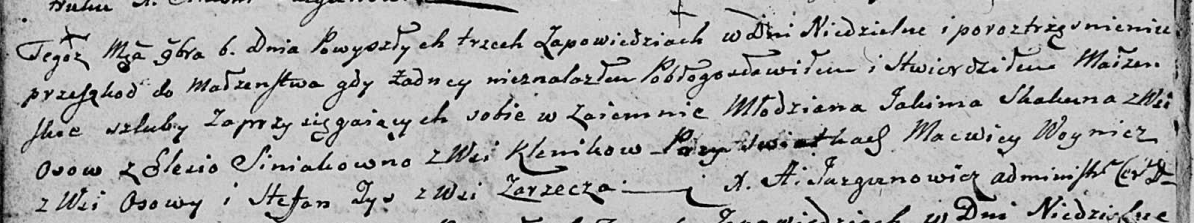 Tegoż Mca 9bra 6. Dnia Powyszłych trzech Zapowiedziach w Dni Niedzielne i poroztrząsnieniu
przeszkod do Małżenstwa gdy Żadney nieznalazłem Pobłogosławiłem i Stwierdziłem Małżen
skie szluby Zaprzysięgaiących sobie w Zaiemnie Młodziana Jakima Skakuna z Wsi
Osow z Elesio Siniakowno z Wsi Klenikow Przy Swiatkach Macwiey Woynicz
z Wsi Osowy i Stefan Dys z Wsi Zarzecza X. A. administr
Zapowiedziach w Dni Niedzielne